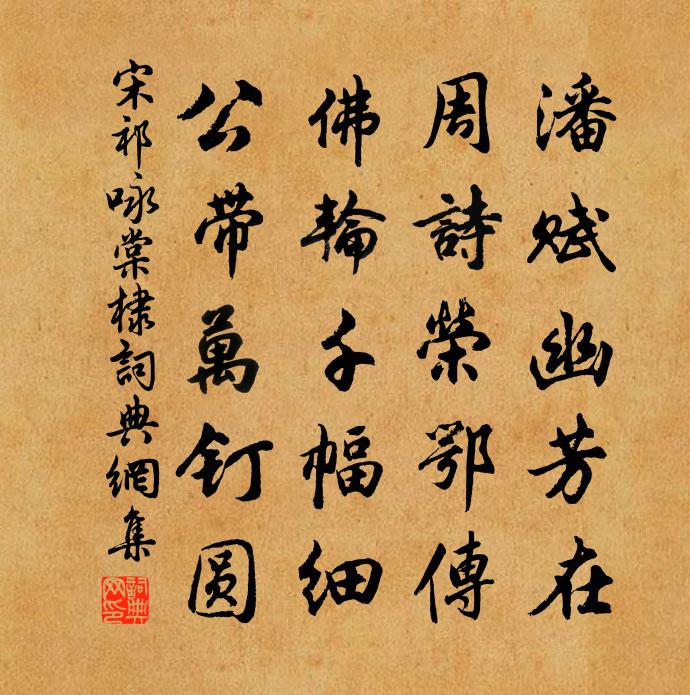 潘赋幽芳在
周詩榮鄂傳
佛輪千幅細
公带萬钉圆
宋祁咏棠棣詞典網集
詞典网印